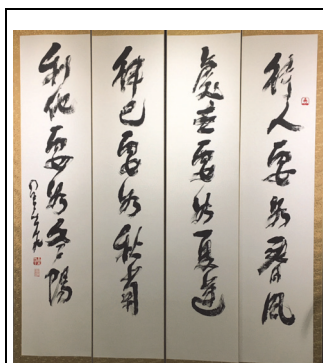 待人要如春風
處要如夏蓮
律己要如秋霜
利他要如冬陽